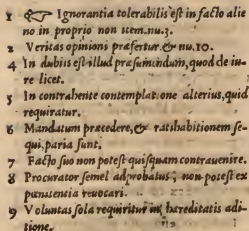 1 ☞ Ignorantia tolerabilis est in facto alie
no in proprio non item.nu.3.
2 Veritas opinioni præfertur.& nu.10.
4 In dubiis est illud præsumendum, quod de iu-
re licet.
5 In contrahente contemplat.one alterius, quid
requiratur.
6 Mandatum præcedere,& ratihabitionem se-
qui, paria sunt.
7 Facto suo non potest quisquam contrauenire.
8 Procurator semel adprobatus, non potest ex
pœnitentia reuocari.
9 Voluntas sola requiritur in hæreditatis adi-
tione.